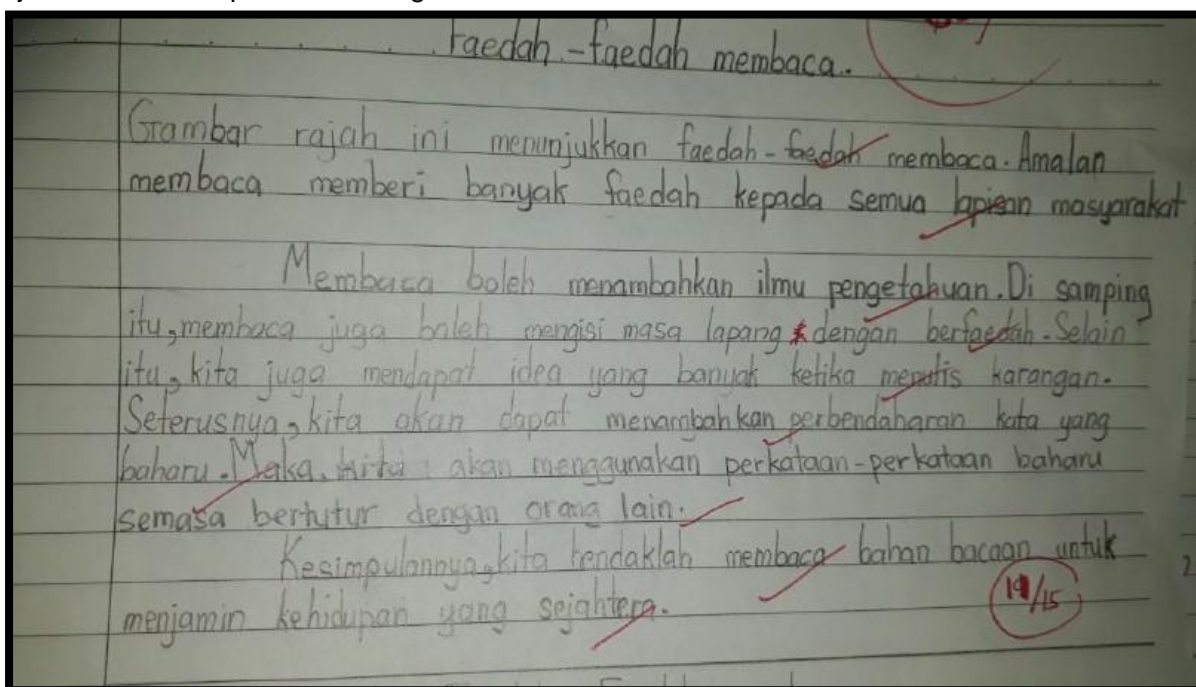 Faedah-faedah membaca.
Gambar rajah ini menunjukkan faedah-faedah membaca. Amalan
membaca memberi banyak faedah kepada semua lapisan masyarakat
Membaca boleh menambahkan ilmu pengetahuan. Di samping
itu, membaca juga boleh mengisi masa lapang dengan berfaedah. Selain
itu, kita juga mendapat idea yang banyak ketika menulis karangan.
Seterusnya, kita akan dapat menambahkan perbendaharan kata yang
baharu. Maka, kita akan menggunakan perkataan-perkataan baharu
semasa bertutur dengan orang lain.
Kesimpulannya, kita hendaklah membaca bahan bacaan untuk
menjamin kehidupan yang sejahtera.
/15